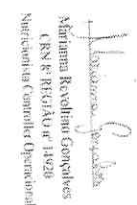 Marianna Rovellino Gonçalves
CRN 6ª REGIÃO nº 14920
Nutricionista Controle Operacional